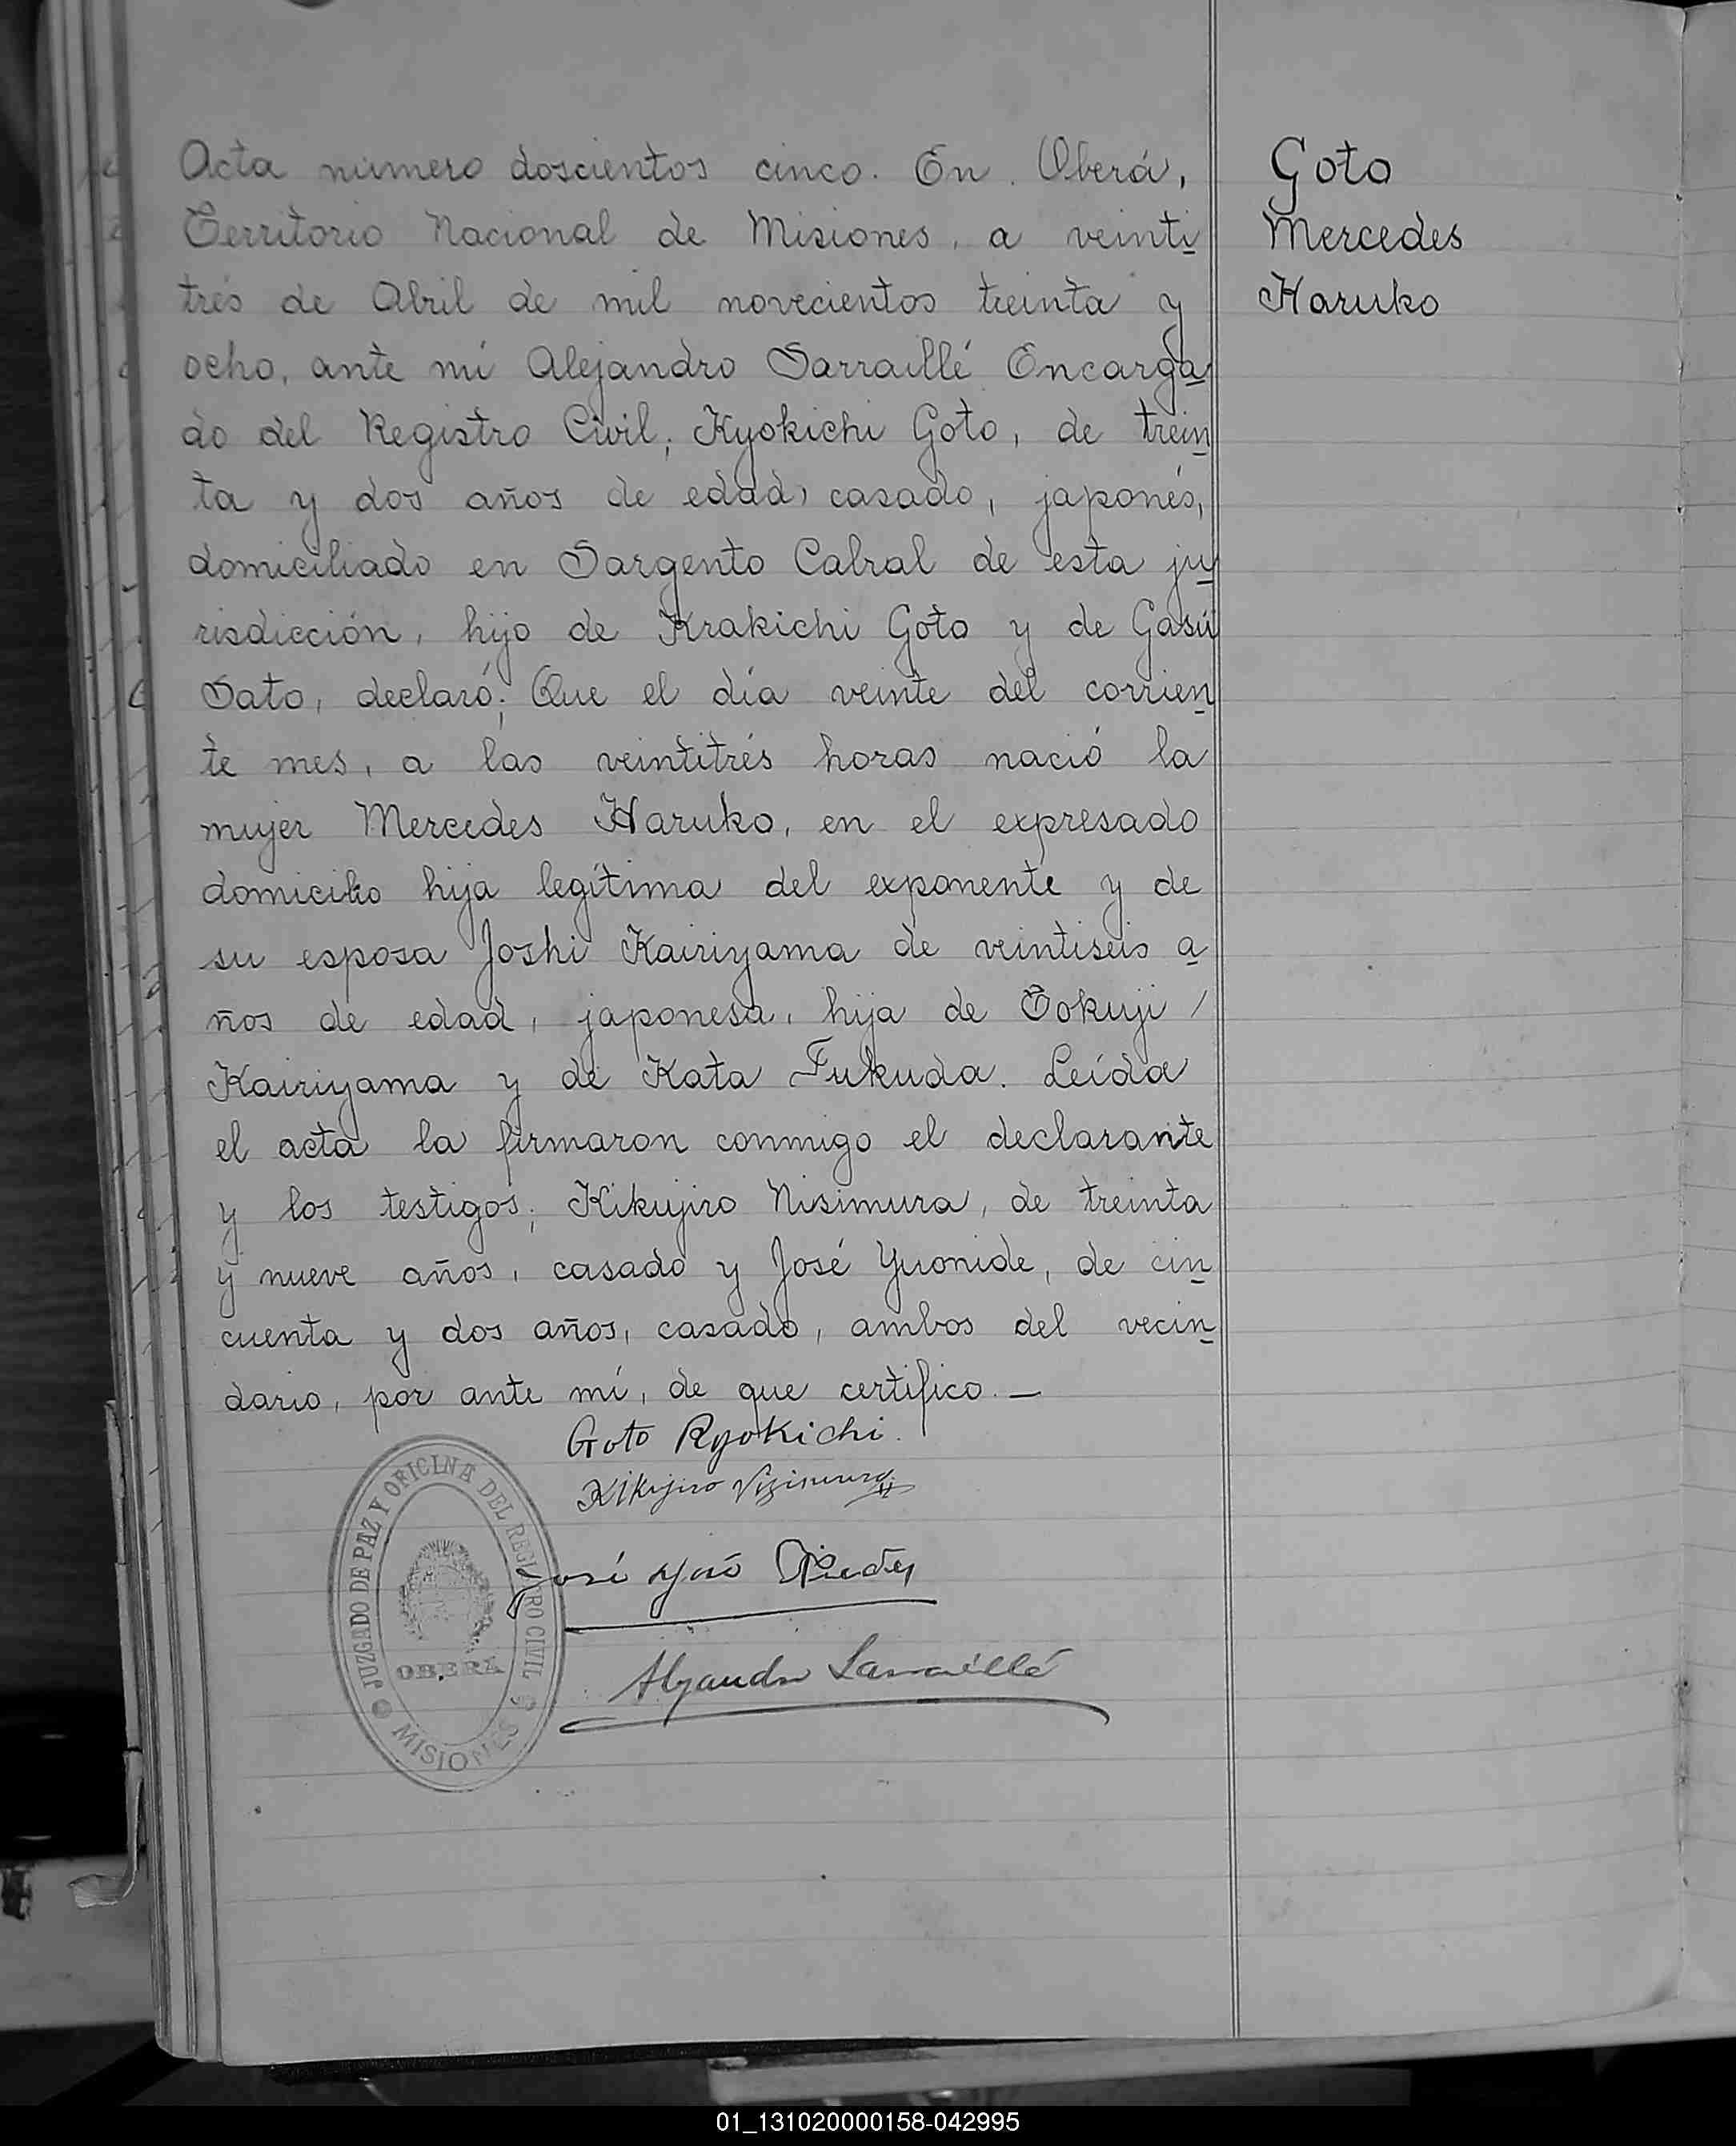 Acta número doscientos cinco. En Oberá,
Territorio Nacional de Misiones, a veinti
trés de Abril de mil novecientos treinta y
ocho, ante mí Alejandro Sarraillé Encarga
do del Registro Civil; Kyokichi Goto, de trein
ta y dos años de edad, casado, japonés,
domiciliado en Sargento Cabral de esta ju
risdicción, hijo de Krakichi Goto y de Gasú
Sato, declaró; Que el día veinte del corrien
te mes, a las veintitrés horas nació la
mujer Mercedes Haruko, en el expresado
domicilio hija legítima del exponente y de
su esposa Joshi Kairiyama de veintiseis a
ños de edad, japonesa, hija de Tokuji /
Kairiyama y de Kata Fukuda. Leída
el acta la firmaron conmigo el declarante
y los testigos; Kikujiro Nisimura, de treinta
y nueve años, casado y José Yuonide, de cin
cuenta y dos años, casado, ambos del vecin
dario, por ante mí, de que certifico. —
Goto Ryokichi.
Kikujiro
José
Alejandro Sarraillé
JUZGADO DE PAZ Y OFICINA DEL REGISTRO CIVIL
OBERÁ
MISIONES
Goto
Mercedes
Haruko
01_131020000158-042995